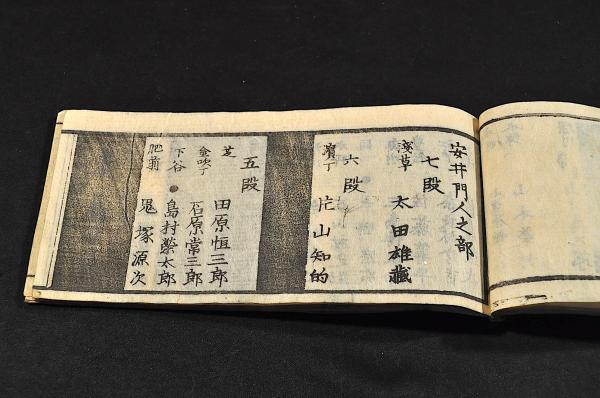 安井門人之部
七段
淺草 太田雄藏
六段
寶丁 片山知的
五段
芝 田原恒三郎
金吹丁 石原常三郎
下谷 ●島村榮太郎
肥前 鬼塚源次